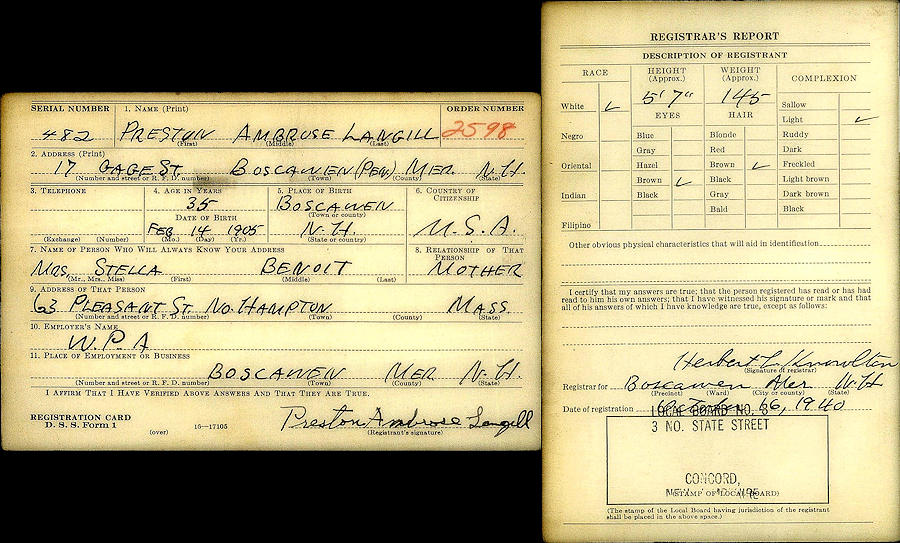 SERIAL NUMBER 1. NAME (Print) ORDER NUMBER
482 PRESTON AMBROSE LANGILL 2598
(First) (Middle) (Last)
2. ADDRESS (Print)
17 GAGE ST. BOSCAWEN (PEN.) MER. N.H.
(Number and street or R. F. D. number) (Town) (County) (State)
3. TELEPHONE 4. AGE IN YEARS 5. PLACE OF BIRTH 6. COUNTRY OF CITIZENSHIP
35 BOSCAWEN
(Town or county)
DATE OF BIRTH
FEB 14 1905 N.H. U.S.A.
(Exchange) (Number) (Mo.) (Day) (Yr.) (State or country)
7. NAME OF PERSON WHO WILL ALWAYS KNOW YOUR ADDRESS 8. RELATIONSHIP OF THAT PERSON
MRS. STELLA BENOIT MOTHER
(Mr., Mrs., Miss) (First) (Middle) (Last)
9. ADDRESS OF THAT PERSON
63 PLEASANT ST. NO. HAMPTON MASS.
(Number and street or R. F. D. number) (Town) (County) (State)
10. EMPLOYER'S NAME
W.P.A
11. PLACE OF EMPLOYMENT OR BUSINESS
BOSCAWEN MER N.H.
(Number and street or R. F. D. number) (Town) (County) (State)
I AFFIRM THAT I HAVE VERIFIED ABOVE ANSWERS AND THAT THEY ARE TRUE.
REGISTRATION CARD
D. S. S. Form 1 (over) 16—17105
Preston Ambrose Langill
(Registrant's signature)
REGISTRAR'S REPORT
DESCRIPTION OF REGISTRANT
RACE HEIGHT (Approx.) WEIGHT (Approx.) COMPLEXION
White ✓ 5' 7" 145 Sallow
EYES HAIR Light ✓
Negro Blue Blonde Ruddy
Gray Red Dark
Oriental Hazel Brown ✓ Freckled
Brown ✓ Black Light brown
Indian Black Gray Dark brown
Bald Black
Filipino
Other obvious physical characteristics that will aid in identification
I certify that my answers are true; that the person registered has read or has had
read to him his own answers; that I have witnessed his signature or mark and that
all of his answers of which I have knowledge are true, except as follows:
Herbert L. Knowlton
(Signature of registrar)
Registrar for Boscawen Mer N.H
(Precinct) (Ward) (City or county) (State)
Date of registration October 16, 1940
LOCAL BOARD NO.
3 NO. STATE STREET
CONCORD,
NEW HAMPSHIRE
(STAMP OF LOCAL BOARD)
(The stamp of the Local Board having jurisdiction of the registrant
shall be placed in the above space.)